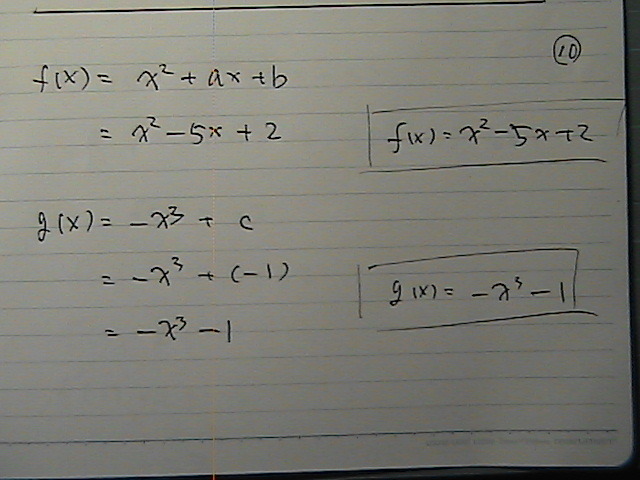 ⑩
f(x) = x² + ax + b
= x² - 5x + 2
f(x) = x² - 5x + 2
g(x) = -x³ + c
= -x³ + (-1)
g(x) = -x³ - 1
= -x³ - 1